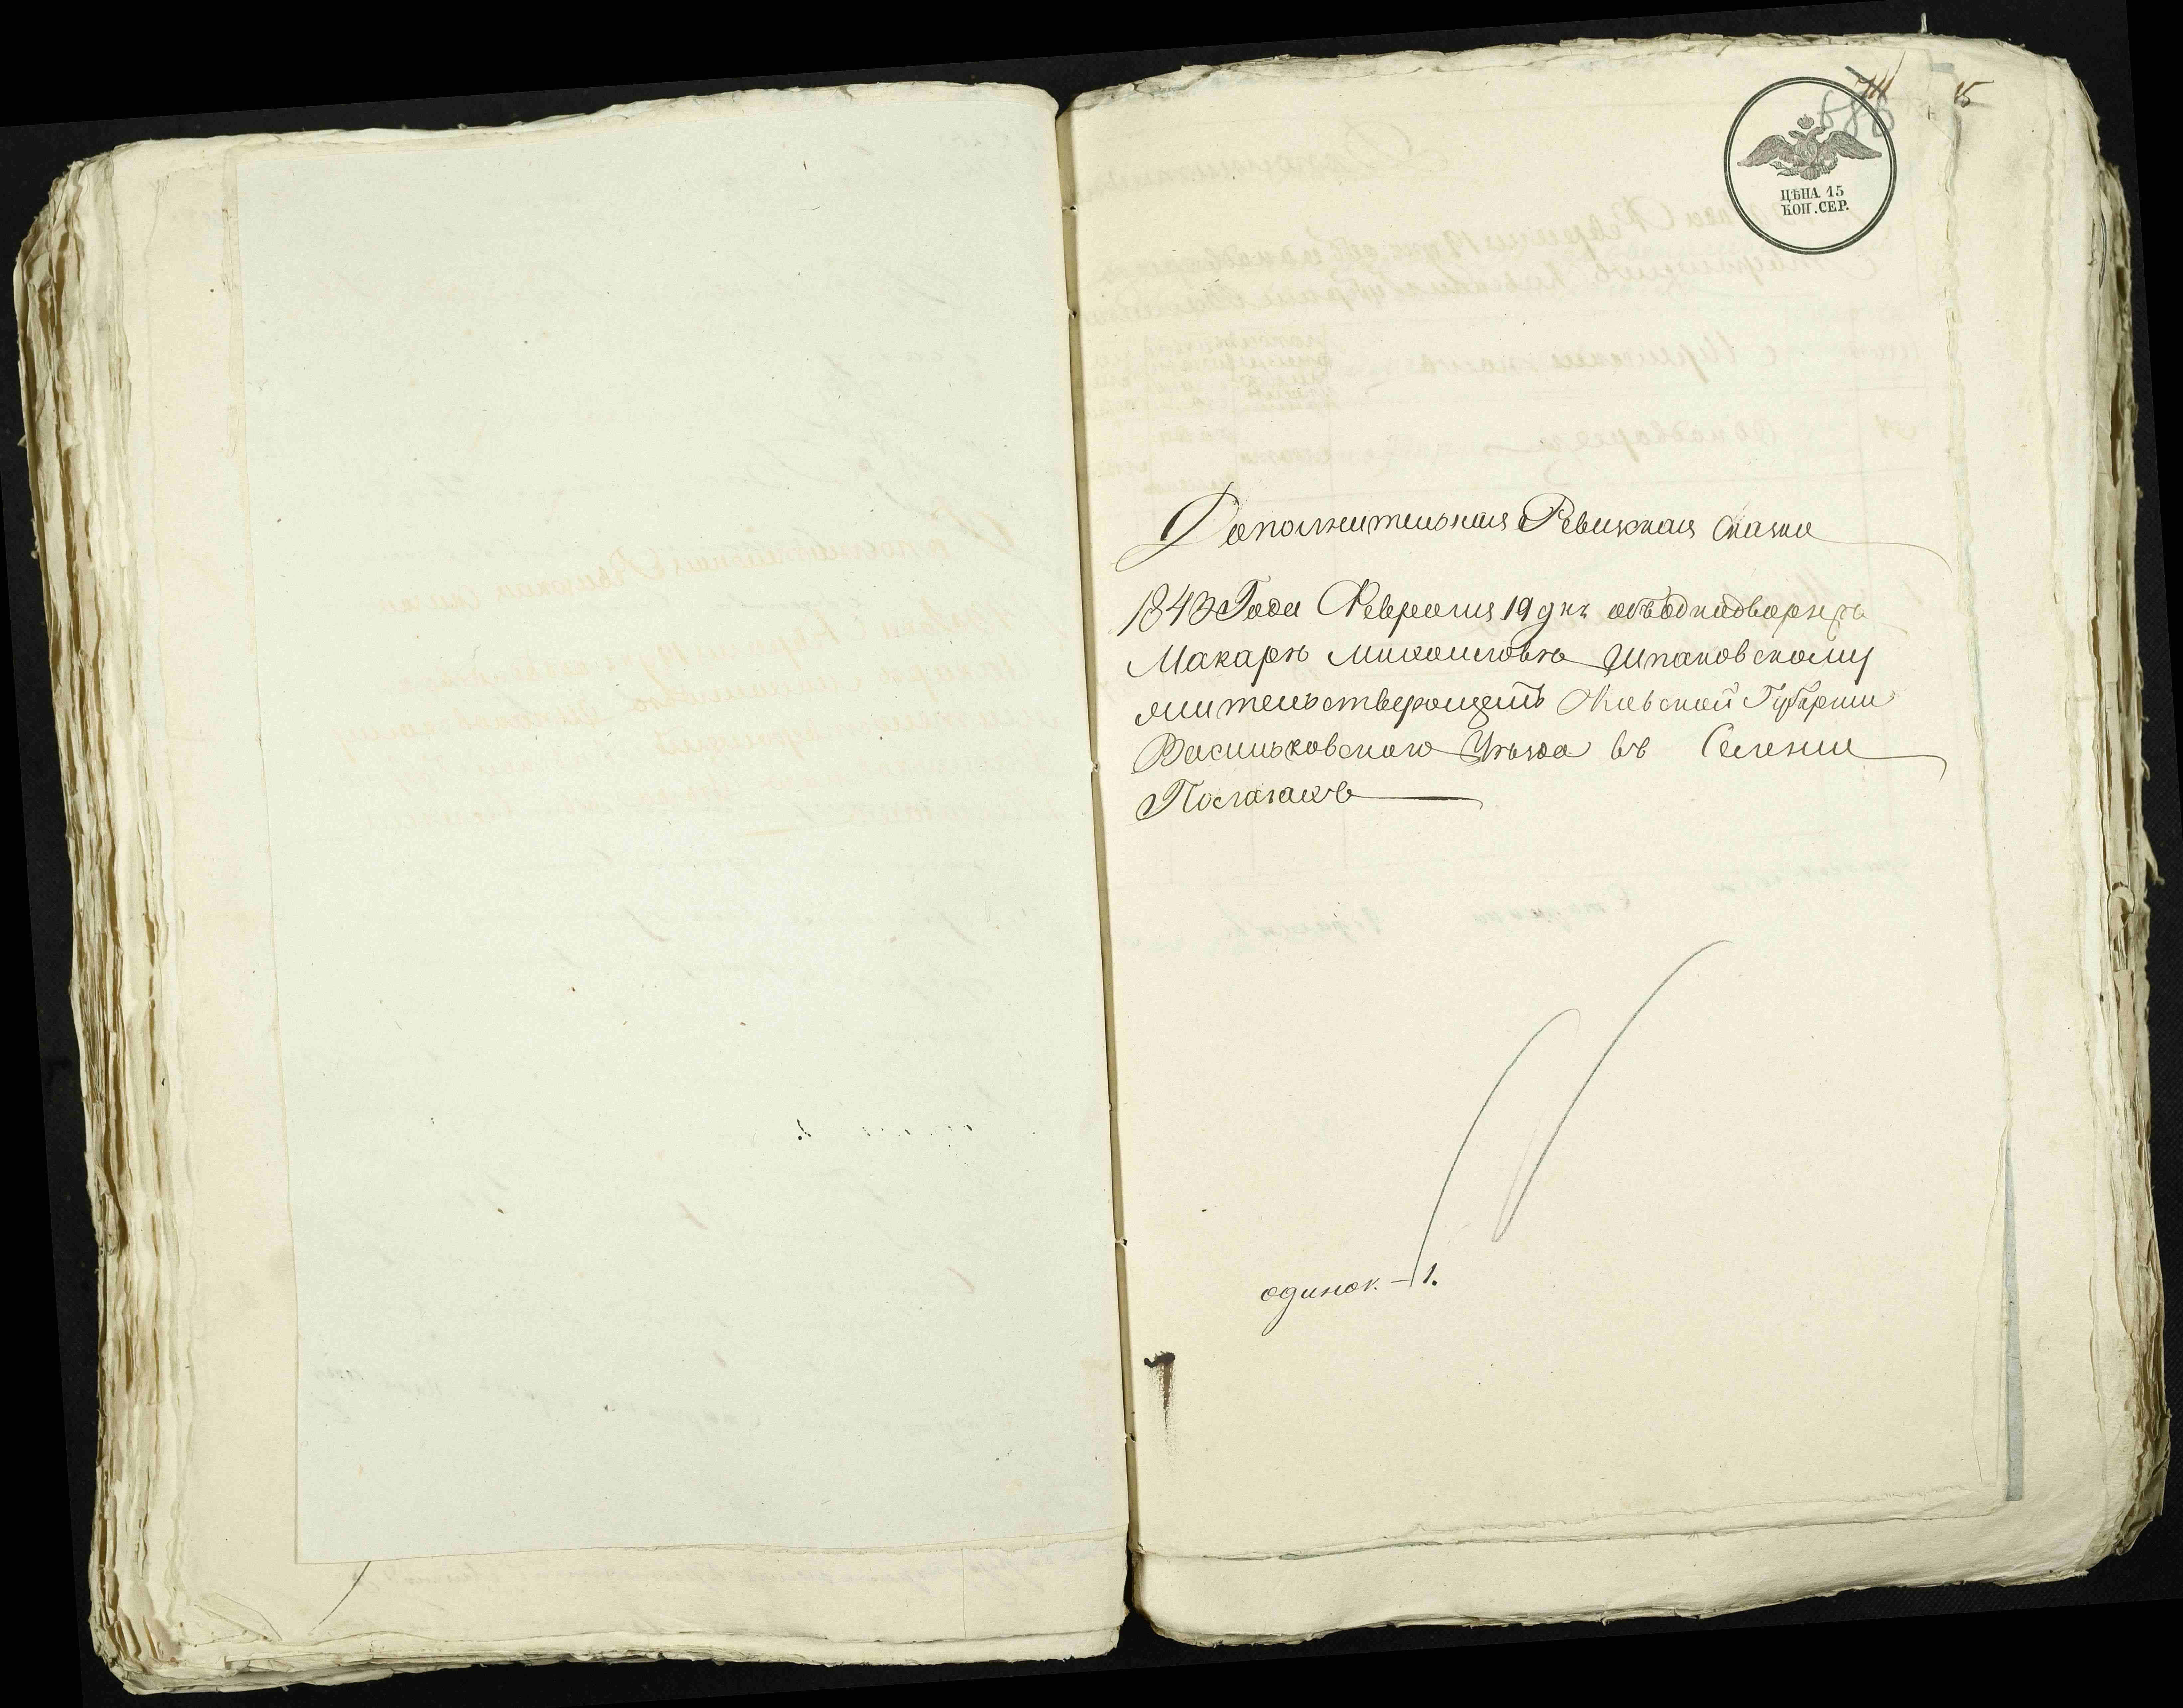 15
686
ЦѢНА 15
КОП. СЕР.
Дополнительная Ревизкая Сказка
1843 Года Февраля 19 дня объ однодворцѣ
Макарѣ Михаиловѣ Шпаковскому
жительствующемъ Киевской Губернии
Васильковского Уѣзда въ Селении
одинок. — 1.